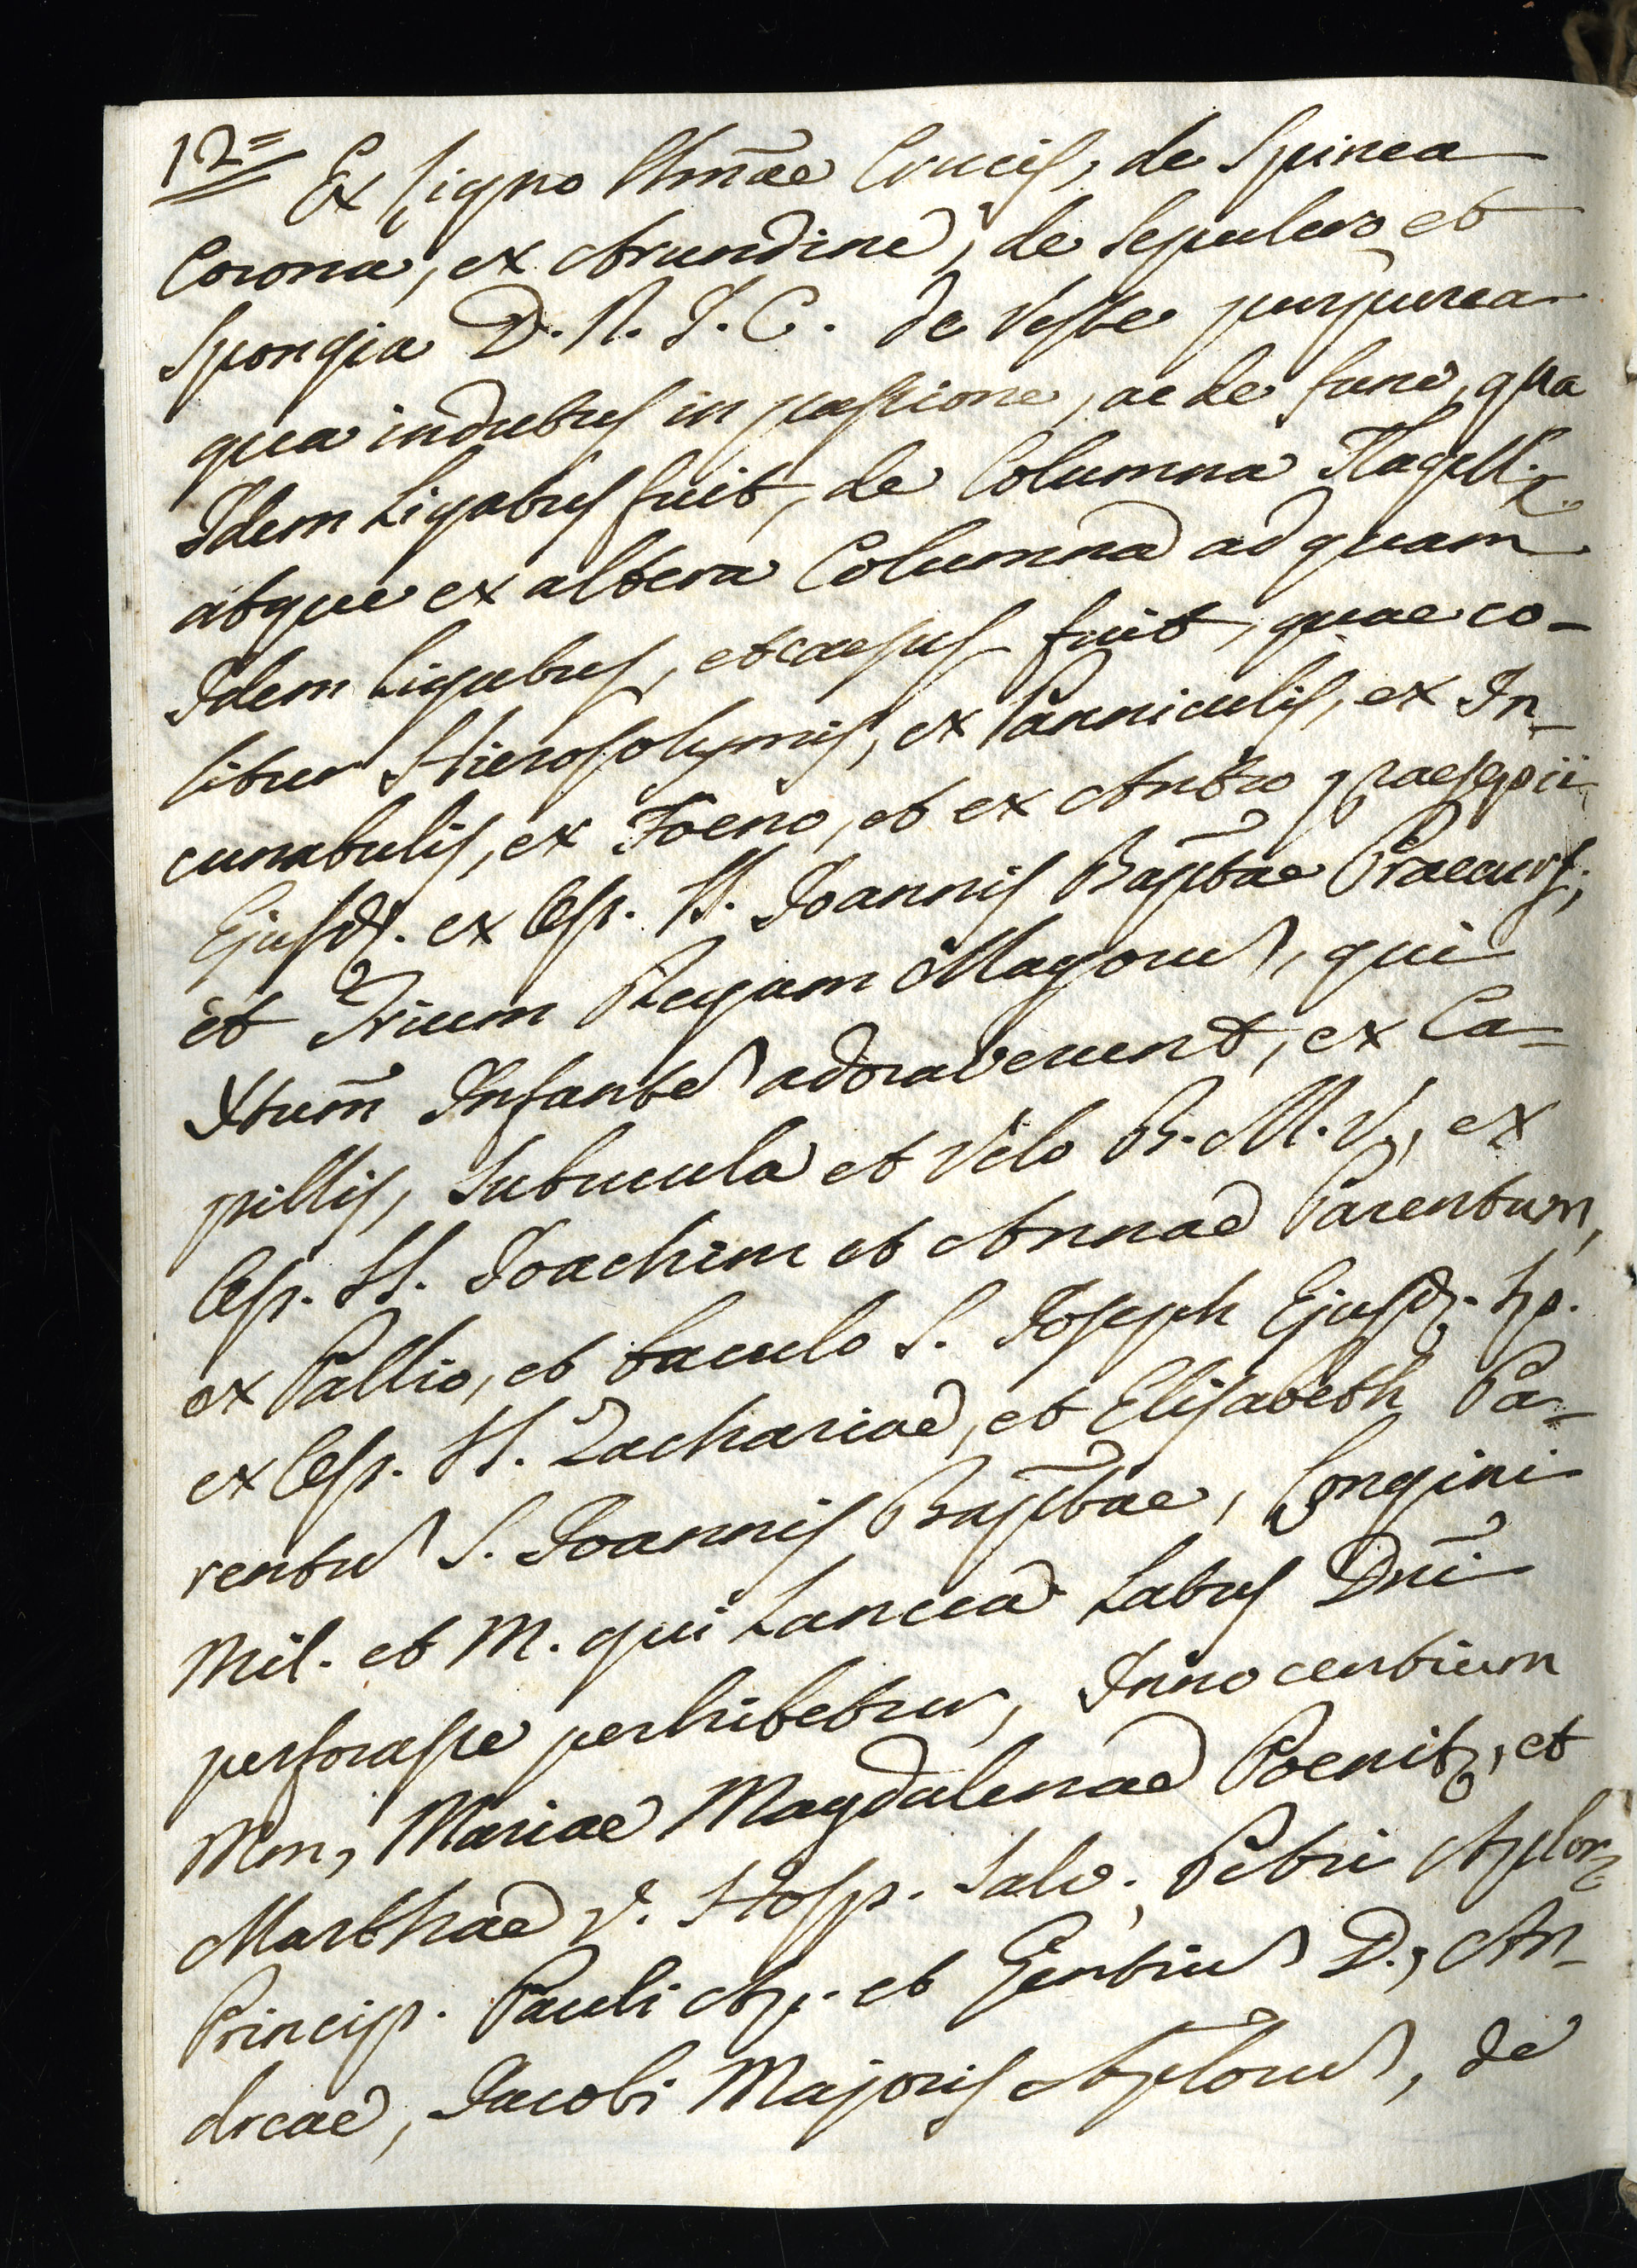 12= Ex Ligno SSmãe Crucis, de Spinea
Corona, ex Arundine, de Sepulcro et
Spongia D. N. J. C. de Veste purpurea
qua indutus in passione, ac de fune, qua
Idem Ligatus fuit, de Columna Flagell.
atque ex altera Columna ad quam
Idem Ligatus, et caesus fuit, quae co-
litur Hierosolymis, ex Panniculis, ex In-
cunabulis, ex Foeno, et ex Antro praesepii
Ejusd. ex Oss. SS. Joannis Bap̃tae Praecurs;
et Trium Regum Magorum, qui
Xtum̃ Infantem adoraverunt, ex Ca-
pillis, Subucula et Velo B. M. V, ex
Oss. SS. Joachim et Annae Parentum,
ex Pallio, et baculo S. Joseph Ejusd. Sp.
ex Oss. SS. Zachariae, et Elisabeth Pa-
rentum S. Joannis Bap̃tae, Longini
Mil. et M. qui Lancea Latus Dñi
perforasse perhibetur, Innocentium
Mm, Mariae Magdalenae Poenit, et
Marthae V. Hosp. Salv. Petri Aplor
Princip. Pauli Ap. et Gentium D., An-
dreae, Jacobi Majoris Ap̃lorum, de